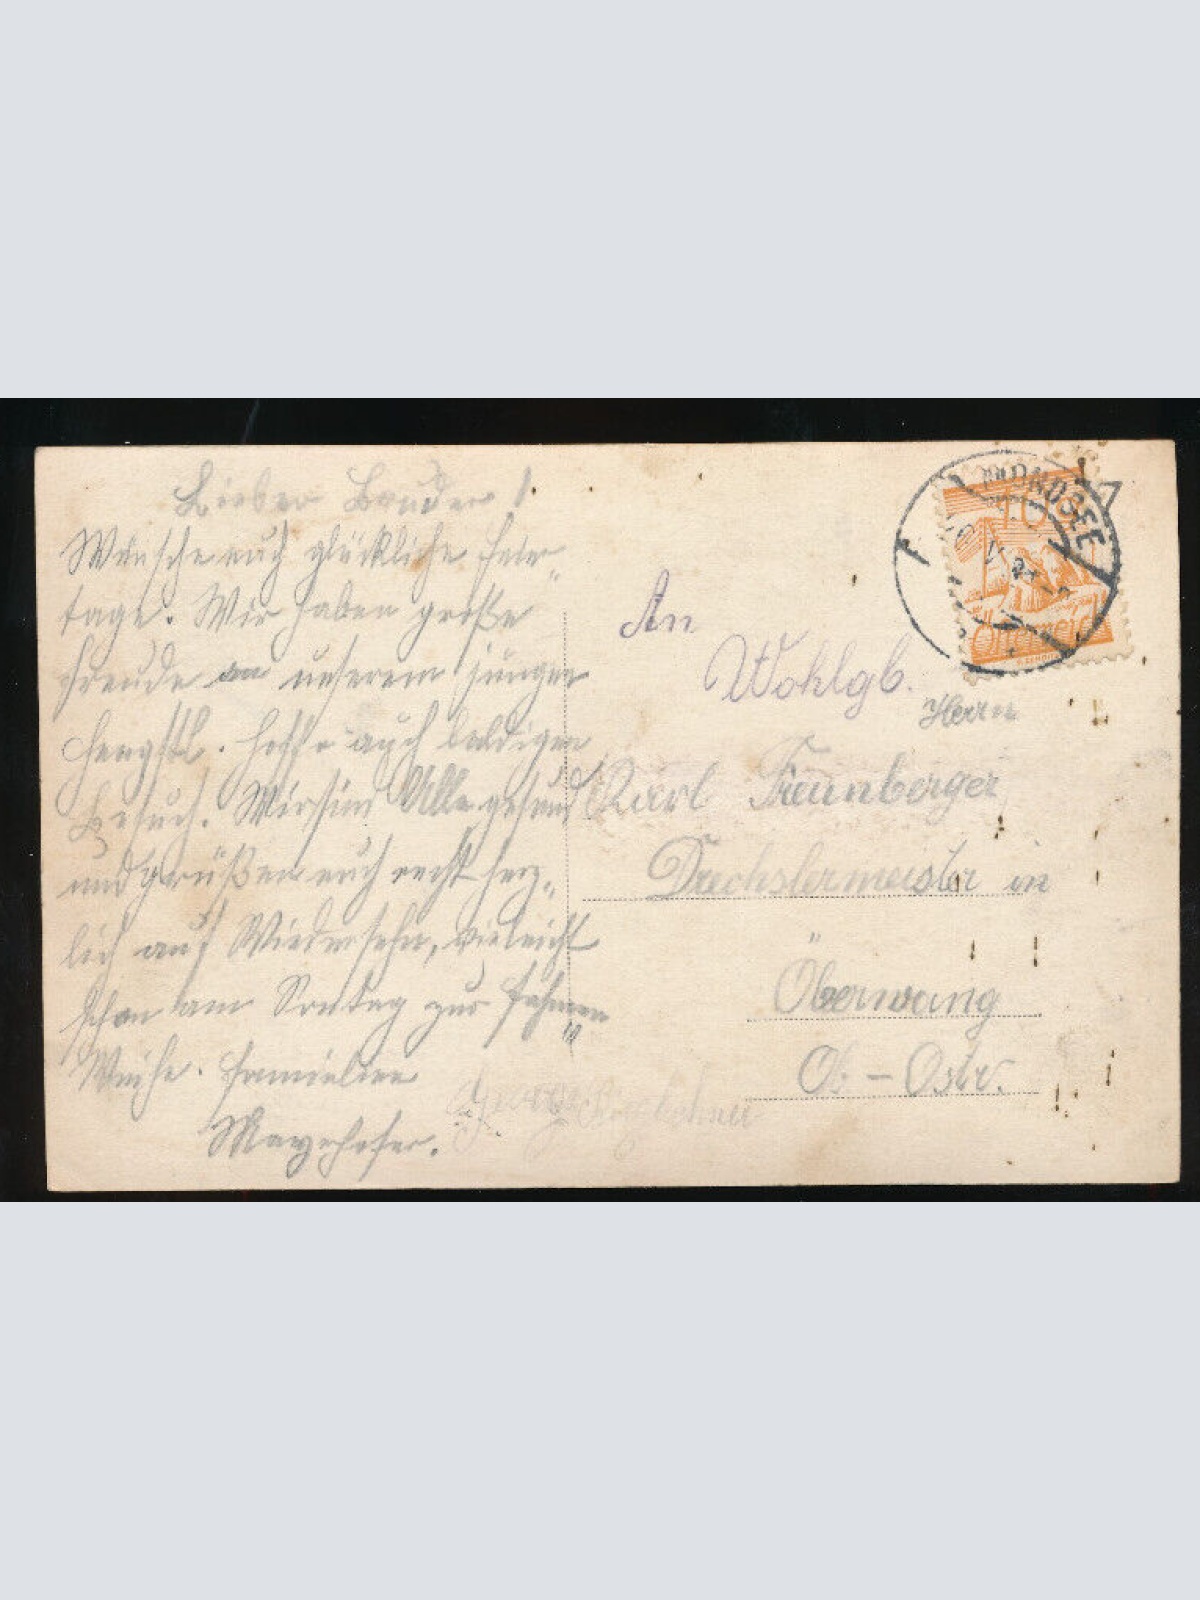 Lieber Bruder!
Wünsche euch glückliche Feier-
tage. Wir haben große
Freude an unserem jungen
Hengstl. Hoffe auch baldigen
Besuch. Wir sind Alle gesund
und grüßen euch recht herz-
lich auf Wiedersehn, vieleicht
schon am Sontag zur Fahnen
Weihe. Familie
Mayrhofer.
An
Wohlgb.
Herrn
Karl Freunberger
Drechslermeister in
Oberwang
Ob-Östr.
MONDSEE
10
Österreich